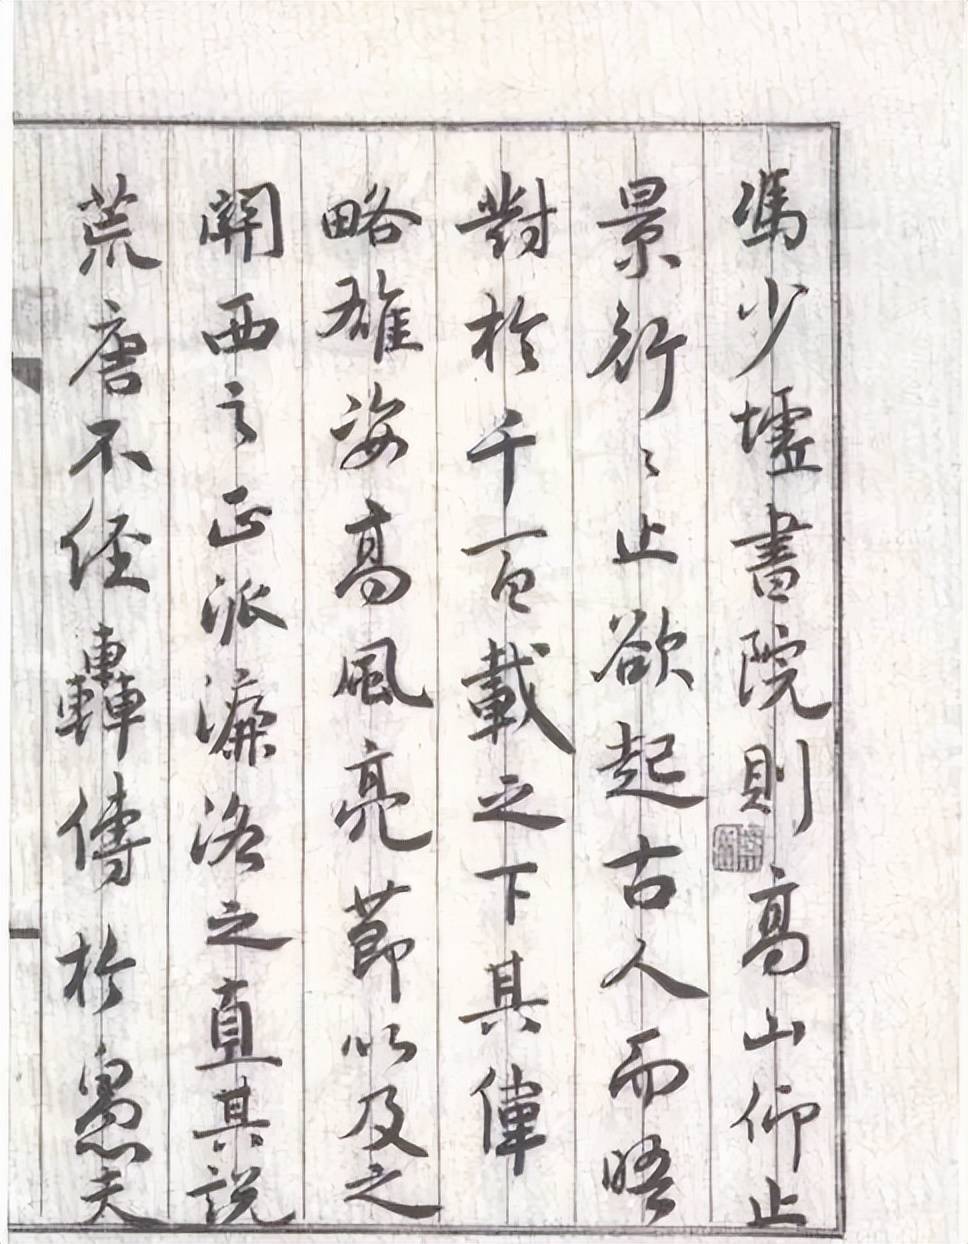 馮少墟書院則高山仰止
景行〻止欲起古人而晤
對於千百載之下其偉
略雄姿高風亮節以及之
關西之正派濂洛之直其說
荒唐不經轉傳於愚夫